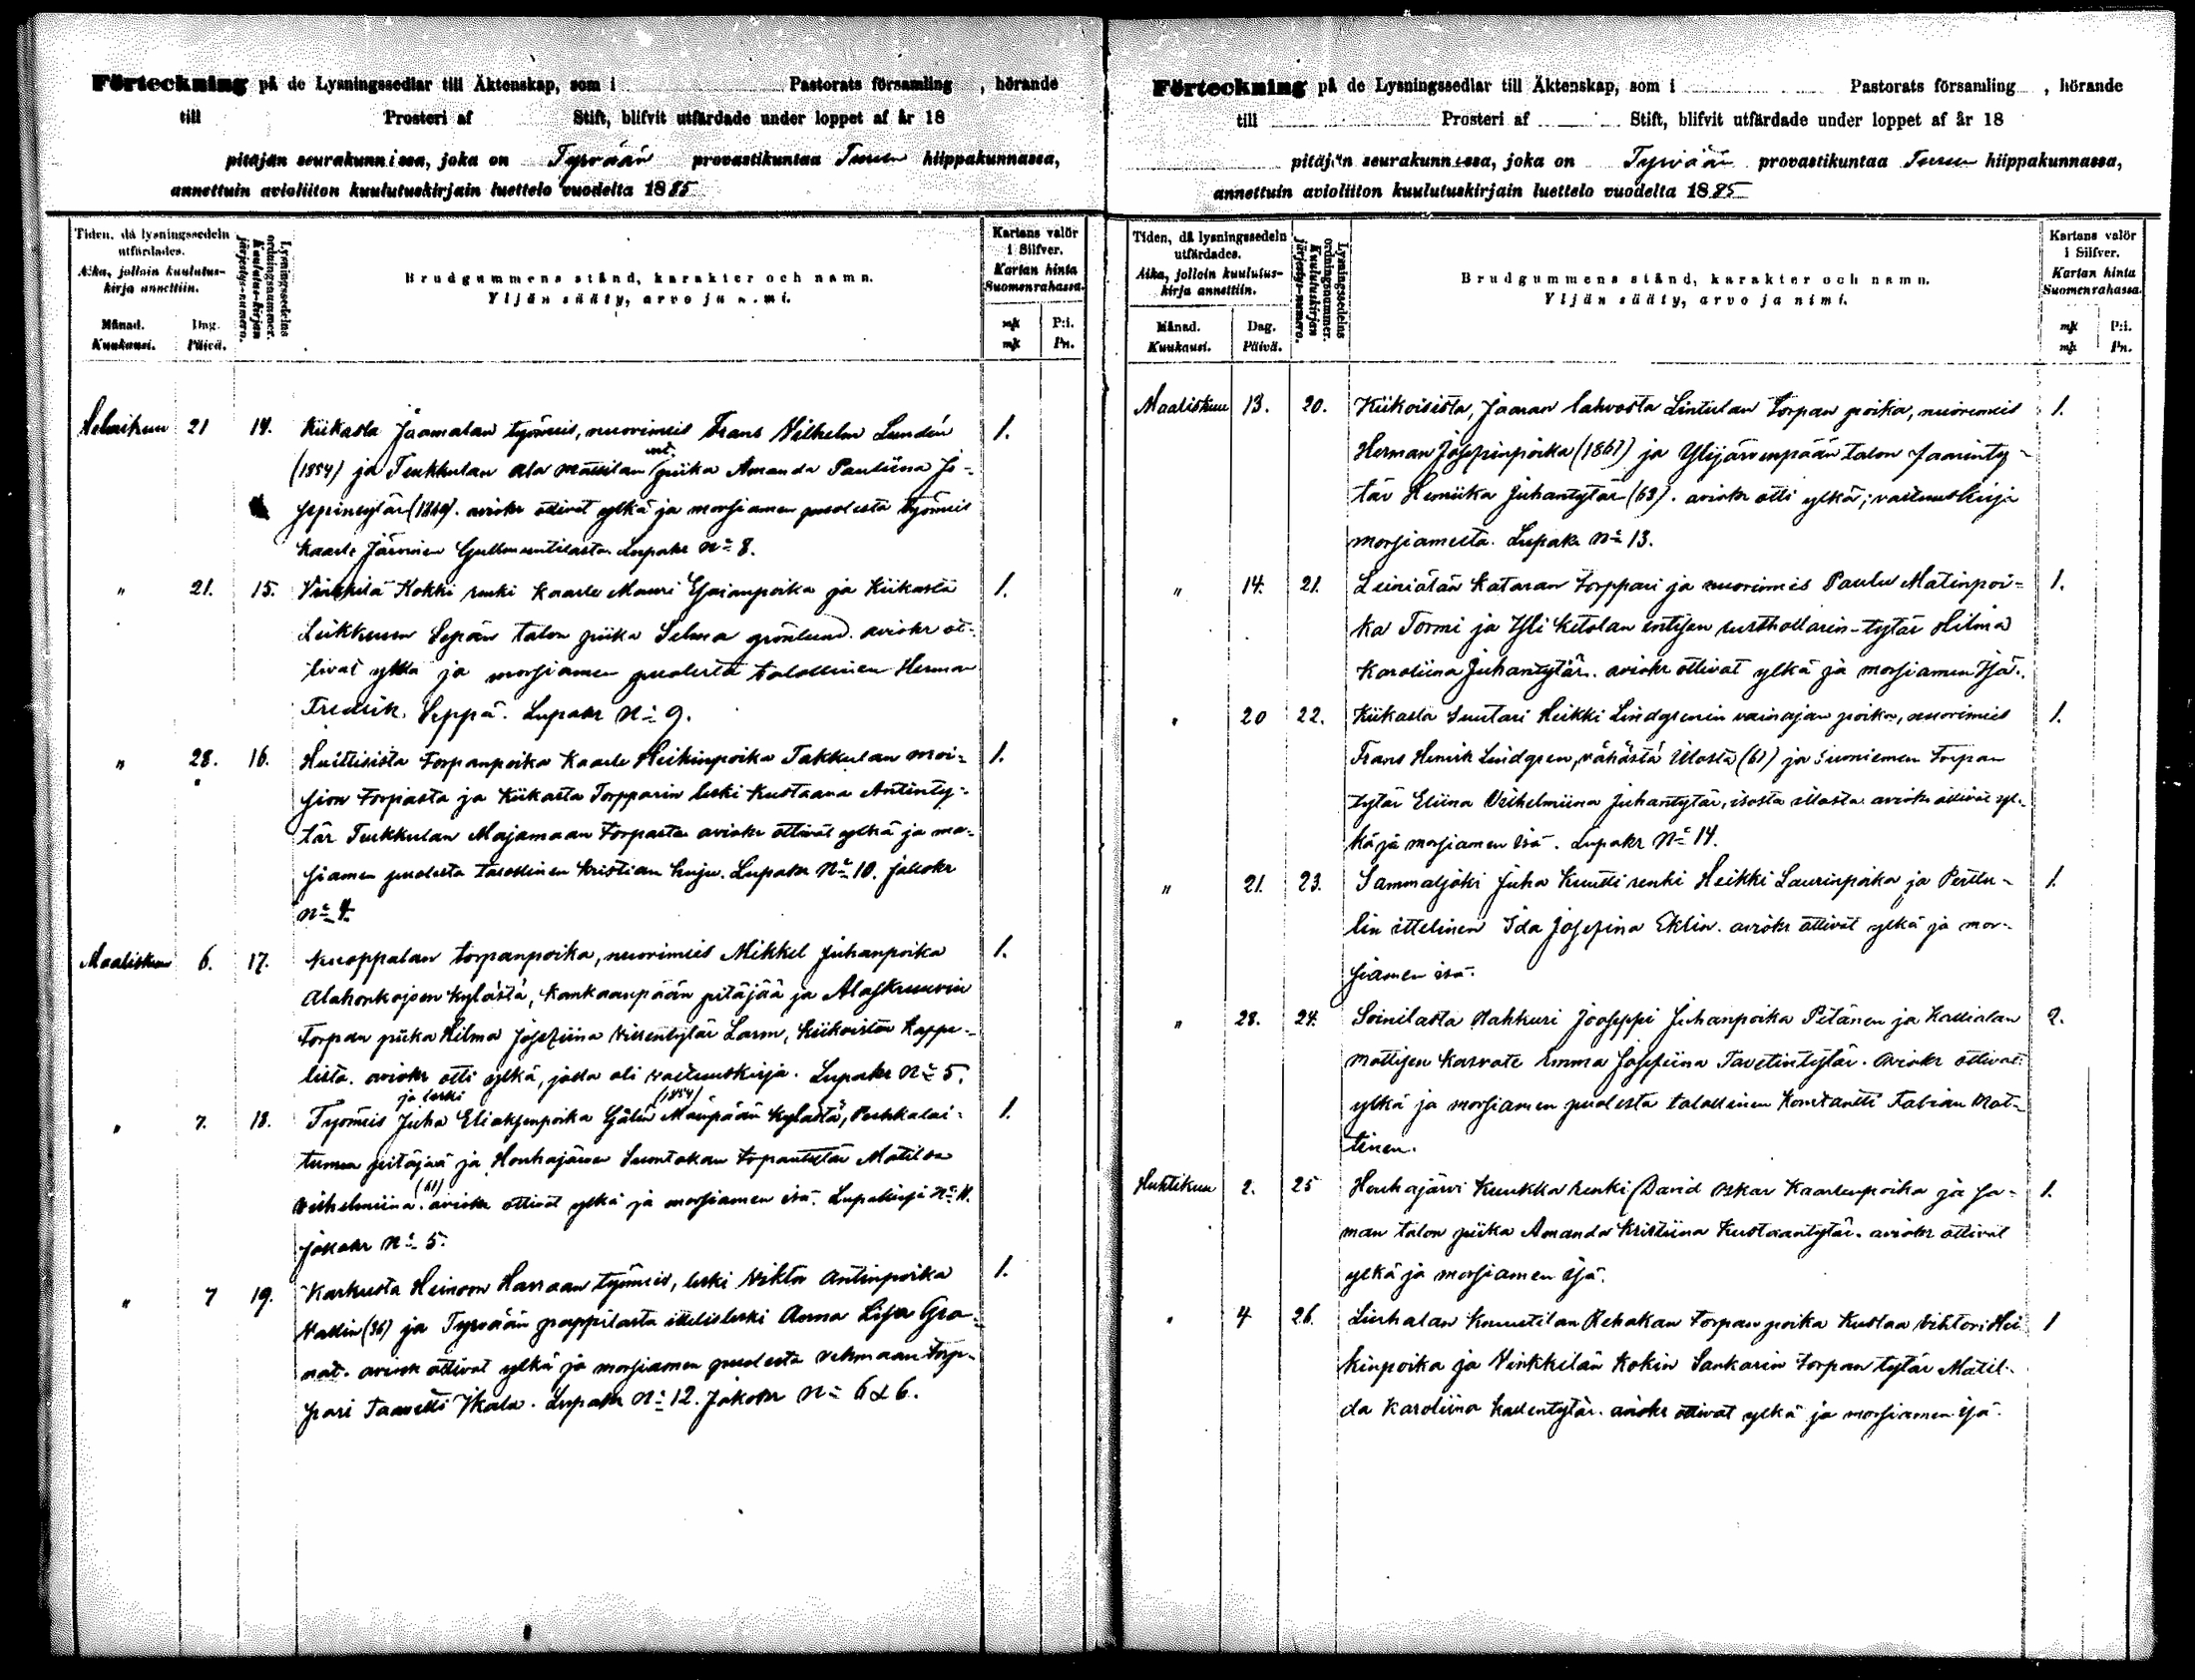 Förteckning på de Lysningssedlar till Äktenskap, som i Pastorats församling , hörande
till Prosteri af Stift, blifvit utfärdade under loppet af år 18
pitäjän seurakunnissa, joka on Tyrvään provastikuntaa Turun hiippakunnassa,
annettuin avioliiton kuulutuskirjain luettelo vuodelta 1885
Tiden, då lysningssedeln utfärdades.
Aika, jolloin kuulutus-kirja annettiin.
Månad. Dag.
Kuukausi. Päivä.
Lysningssedelns ordningsnummer.
Kuulutus-kirjan järjestys-numero.
Brudgummens stånd, karakter och namn.
Yljän sääty, arvo ja nimi.
Kartans valör i Silfver.
Kartan hinta Suomenrahassa.
mk P:i.
mk Pn.
Helmikuu 21 14. Kiikasta Jaamalan työmies, nuorimies Frans Vilhelm Lundén 1.
(1854) ja Teukkulan ala piika Amanda Pauliina Jo-
sepintytär aviokr ottivat ylkä ja morsiamen puolesta työmies
Kaarle Järvinen Lupakr No 8.
" 21. 15. Kokki renki Kaarle Mauri ja Kiikasta 1.
Leikkuun Sepän talon piika Selma Grönlund. aviokr ot-
tivat ylkä ja morsiamen puolesta talollinen Herman
Fredrik Seppä. Lupakr No 9.
" 28. 16. Huittisista torpanpoika Kaarle Heikinpoika Takkulan moi- 1.
sion torpasta ja Kiikasta Torpparin leski Kustaava Antinty-
tär Teukkulan Majamaan torpasta aviokr ottivat ylkä ja mo-
siamen puolesta talollinen Kristian Kuju. Lupakr No 10. jakokr
No 4.
Maaliskuu 6. 17. Kuoppalan torpanpoika, nuorimies Mikkel Juhanpoika 1.
Alahonkajoen kylästä, Kankaanpään pitäjää ja Alaskruuvin
torpan piika Hilma Josefiina Larm, Kiikoisten kappe-
lista. aviokr otti ylkä, jolla oli vastuuskirja. Lupakr No 5.
ja leski (1854)
" 7. 18. Työmies Juha Eliaksenpoika Mäenpään kylästä, 1.
pitäjää ja Houhajärven Suontakan torpantytär Matilda
(61)
Vilhelmiina. aviokr ottivat ylkä ja morsiamen isä. Lupakirja No 11.
jakokr No 5.
" 7 19. Karkusta Heinoon Harraan työmies, leski Viktor Antinpoika 1.
Vallin (36) ja Tyrvään pappilasta itellisleski Anna Liisa Gra-
nat. aviokr ottivat ylkä ja morsiamen puolesta torp-
pari Taavetti Lupakr No 12. Jakokr No 6 & 6.
Förteckning på de Lysningssedlar till Äktenskap, som i Pastorats församling , hörande
till Prosteri af Stift, blifvit utfärdade under loppet af år 18
pitäjän seurakunnissa, joka on Tyrvään provastikuntaa Turun hiippakunnassa,
annettuin avioliiton kuulutuskirjain luettelo vuodelta 1885
Tiden, då lysningssedeln utfärdades.
Aika, jolloin kuulutus-kirja annettiin.
Månad. Dag.
Kuukausi. Päivä.
Lysningssedelns ordningsnummer.
Kuulutuskirjan järjestys-numero.
Brudgummens stånd, karakter och namn.
Yljän sääty, arvo ja nimi.
Kartans valör i Silfver.
Kartan hinta Suomenrahassa
mk P:i.
mk Pn.
Maaliskuu 13. 20. Kiikoisista, Jaaran lahvosta Lintulan torpan poika, nuorimies 1.
Herman Josepinpoika (1861) ja Ylijärvenpään talon
tär Hemiika Juhantytär (63). aviokr otti ylkä; vastuuskirja
morsiamesta. Lupakr No 13.
" 14. 21. Leiniälän Kataran torppari ja nuorimies Paulu Matinpoi- 1.
ka Tormi ja Yli Ketolan entisen rusthollarin-tytär Hilma
Karoliina Juhantytär. aviokr ottivat ylkä ja morsiamen isä.
" 20 22. Kiikasta Suutari Heikki Lindgrenin vainajan poika, nuorimies 1.
Frans Henrik Lindgren, vähästä Illosta (61) ja Suoniemen torpan
tytär Eliina Vilhelmiina Juhantytär, isosta illosta. aviokr ottivat yl-
kä ja morsiamen isä. Lupakr No 14.
" 21. 23. Sammaljoki Juha Knuutti renki Heikki Laurinpoika ja Perttu- 1.
lin ittelinen Ida Josefina Eklin. aviokr ottivat ylkä ja mor-
siamen isä.
" 28. 24. Soinilasta Nahkuri Jooseppi Juhanpoika Pitänen ja Kallialan 2.
mattisen kasvate Emma Josefiina Tavetintytär. Aviokr ottivat
ylkä ja morsiamen puolesta talollinen Konstantti Fabian Mat-
tinen.
Huhtikuu 2. 25 Houhajärvi Kuukka renki David Oskar Kaarlenpoika ja Ja- 1.
man talon piika Amanda Kristiina Kustaantytär. aviokr ottivat
ylkä ja morsiamen isä.
" 4 26. Liuhalan Knuutilan Rehakan torpan poika Kustaa Viktori Hei- 1
kinpoika ja Vinkkilän Kokin Sankarin torpan tytär Matil-
da Karoliina Kallentytär. aviokr ottivat ylkä ja morsiamen isä.